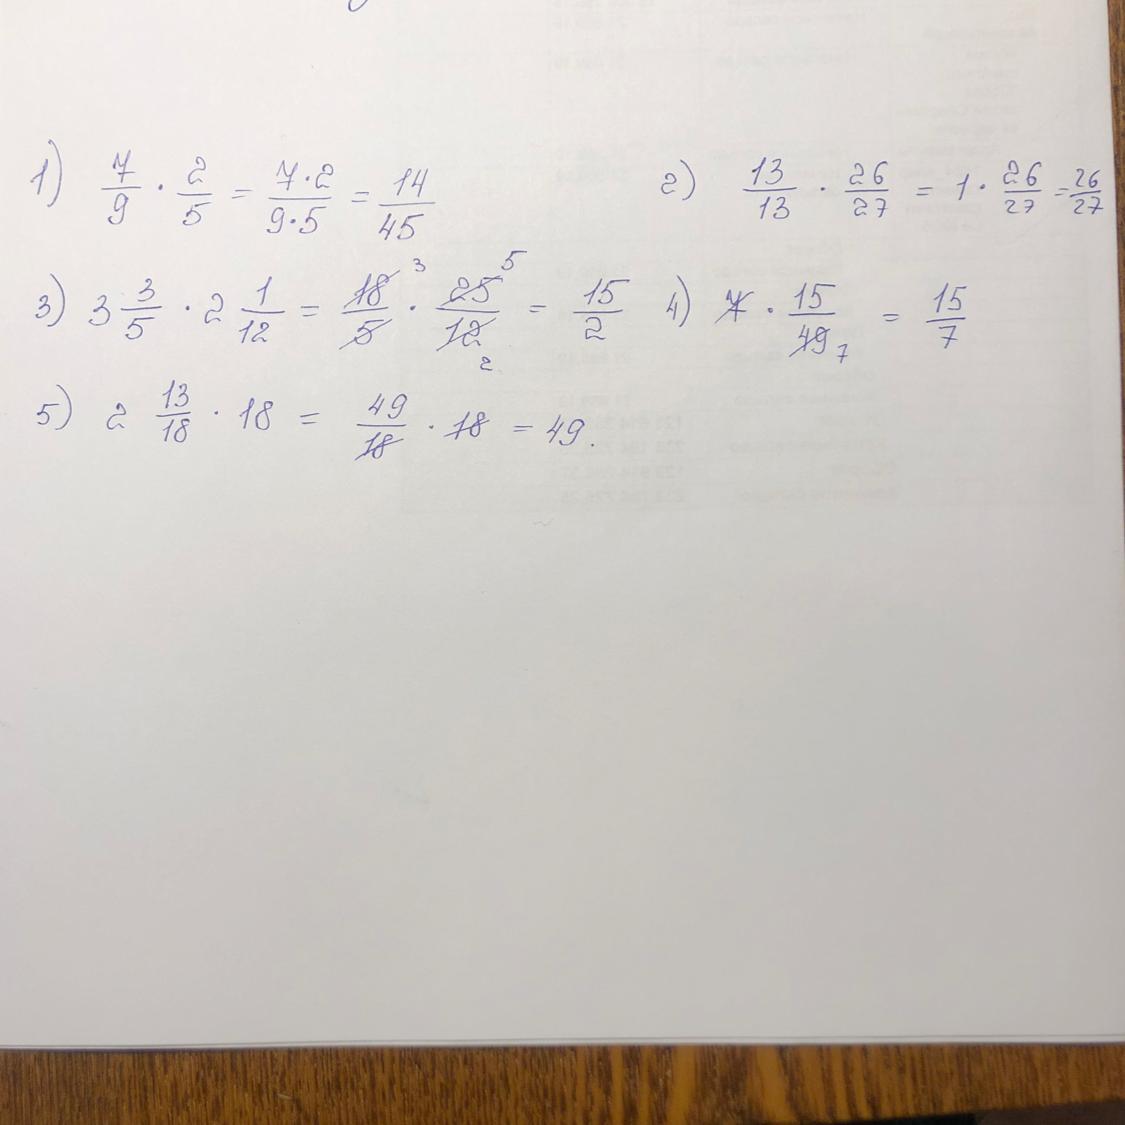 1) 7/9 · 2/5 = 7·2/9·5 = 14/45
2) 13/13 · 26/27 = 1 · 26/27 = 26/27
3) 3 3/5 · 2 1/12 = 18 3/5 · 25 5/12 2 = 15/2
4) 7 · 15/49 7 = 15/7
5) 2 13/18 · 18 = 49/18 · 18 = 49.